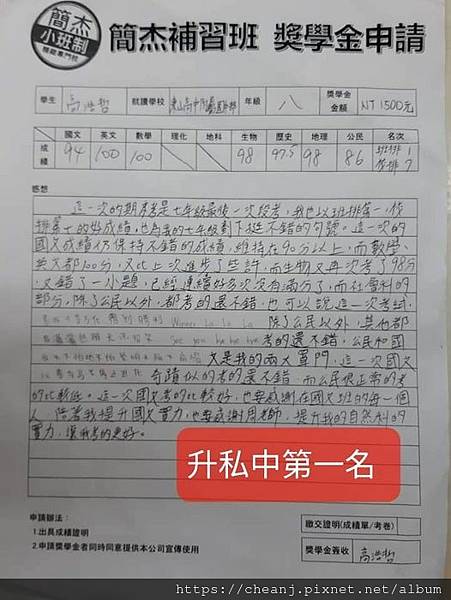 簡杰
小班制
簡杰補習班 獎學金申請
學生 高浩哲 就讀學校 東山高中 年級 八 獎學金金額 NT 1500元
國文 英文 數學 理化 地科 生物 歷史 地理 公民 名次
成績 94 100 100 98 97.5 98 86 班排1 校排7
感想
這一次的期末考是七年級最後一次段考,我也以班排第一,校
排第七的好成績,也為我的七年級劃下挺不錯的句號。這一次的
國文成績仍保持不錯的成績,維持在90分以上,而數學、
英文都100分,又比上次進步了些許,而生物又再次考了98分,
又錯了一小題,已經連續好多次沒有滿分了,而社會科的
部分,除了公民以外,都考的還不錯,也可以說這一次考試,
除了公民以外,其他都
考的還不錯,公民和國
文是我的兩大罩門,這一次國文
奇蹟似的考的還不錯,而公民很正常的考
的比較低。這一次國文考的比較好,也要感謝在國文班的每一個
人,陪著我提升國文實力,也要感謝周老師,提升我的自然科的
實力,讓我考的更好。
升私中第一名
申請辦法:
1.出具成績證明
2.申請獎學金者同時同意提供本公司宣傳使用
繳交證明(成績單/考卷)
獎學金簽收 高浩哲
https://cheanj.pixnet.net/album